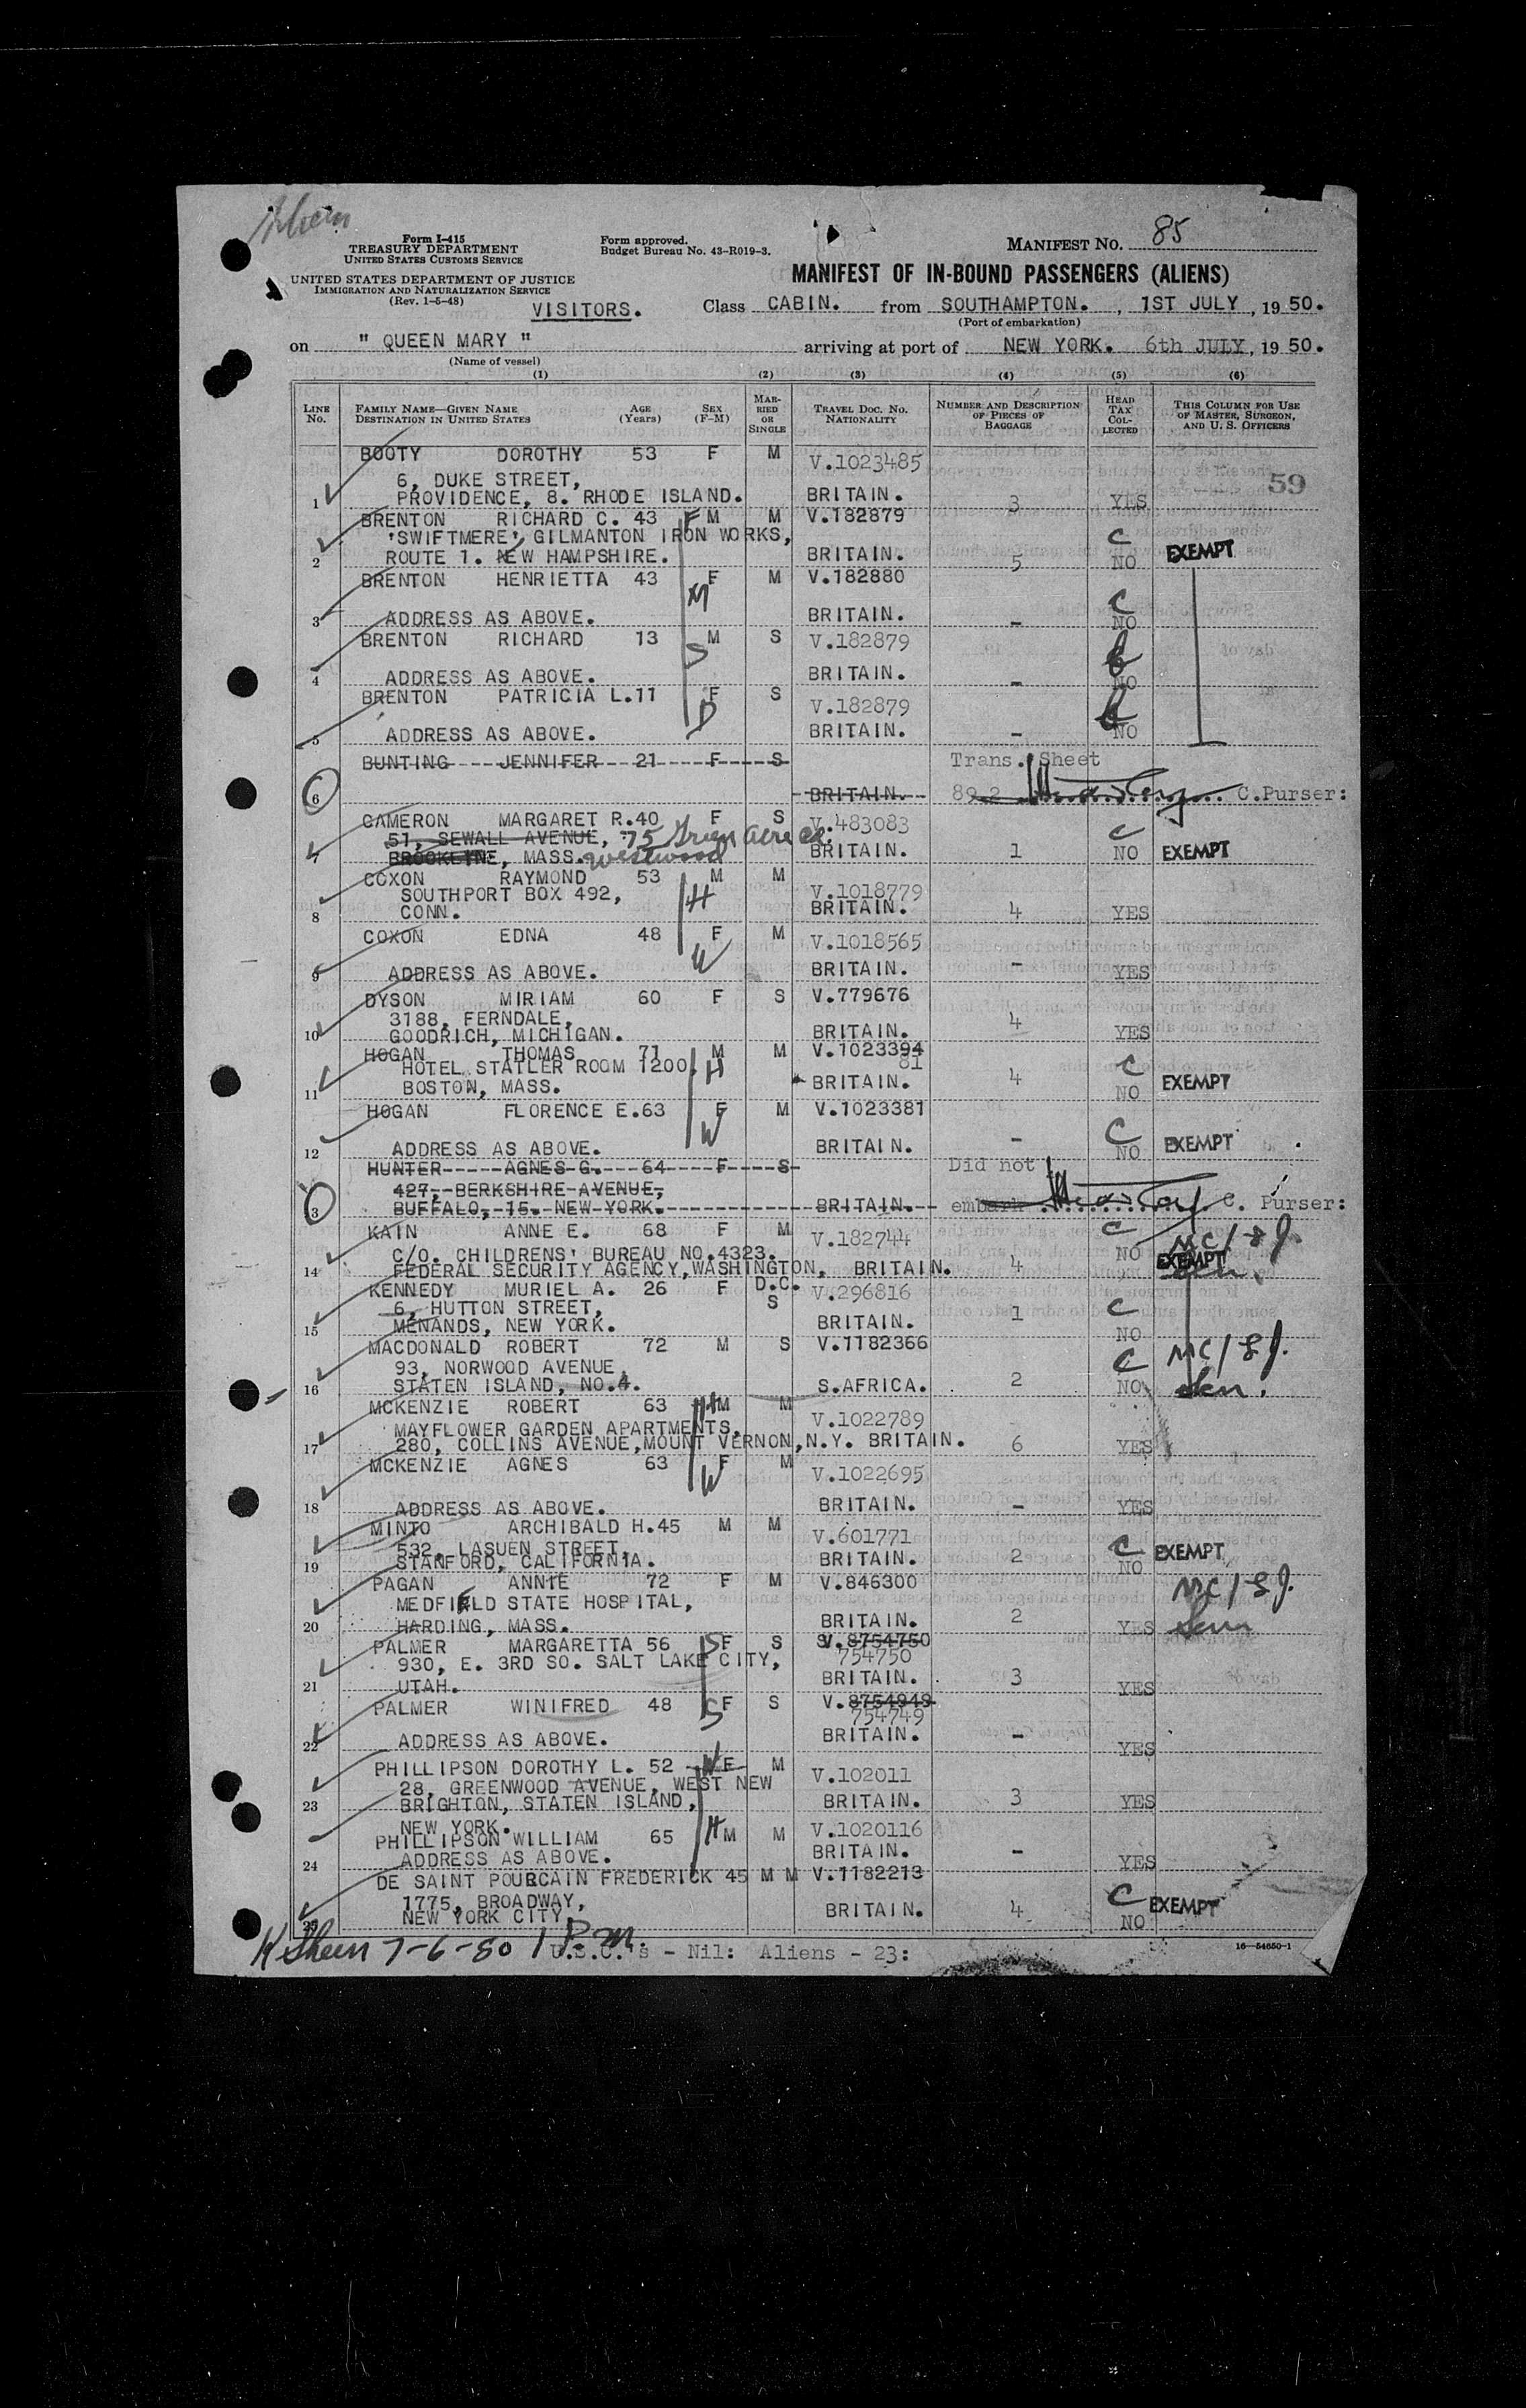 Form I-415
TREASURY DEPARTMENT
UNITED STATES CUSTOMS SERVICE
UNITED STATES DEPARTMENT OF JUSTICE
IMMIGRATION AND NATURALIZATION SERVICE
(Rev. 1-5-48)
Form approved.
Budget Bureau No. 43-R019-3.
MANIFEST NO. 85
MANIFEST OF IN-BOUND PASSENGERS (ALIENS)
VISITORS.
Class CABIN. from SOUTHAMPTON. , 1ST JULY , 19 50.
(Port of embarkation)
on " QUEEN MARY " arriving at port of NEW YORK. 6th JULY, 19 50.
(Name of vessel)
(1) (2) (3) (4) (5) (6)
LINE No. FAMILY NAME—GIVEN NAME DESTINATION IN UNITED STATES AGE (Years) SEX (F-M) MARRIED OR SINGLE TRAVEL DOC. NO. NATIONALITY NUMBER AND DESCRIPTION OF PIECES OF BAGGAGE HEAD TAX COLLECTED THIS COLUMN FOR USE OF MASTER, SURGEON, AND U. S. OFFICERS
BOOTY DOROTHY 53 F M V.1023485
6, DUKE STREET, 59
1 PROVIDENCE, 8. RHODE ISLAND. BRITAIN. 3 YES
BRENTON RICHARD C. 43 F M M V.182879
'SWIFTMERE', GILMANTON IRON WORKS, C
2 ROUTE 1. NEW HAMPSHIRE. BRITAIN. 5 NO EXEMPT
BRENTON HENRIETTA 43 F M V.182880
M C
3 ADDRESS AS ABOVE. BRITAIN. - NO
BRENTON RICHARD 13 M S V.182879
S
4 ADDRESS AS ABOVE. BRITAIN. - NO
BRENTON PATRICIA L. 11 F S V.182879
D
5 ADDRESS AS ABOVE. BRITAIN. - NO
BUNTING JENNIFER 21 F S Trans. Sheet
6 BRITAIN. 89.2 C.Purser:
CAMERON MARGARET R. 40 F S V.483083
51, SEWALL AVENUE, 75 Green Acre C
7 BROOKLINE, MASS. Westwood BRITAIN. 1 NO EXEMPT
COXON RAYMOND 53 M M V.1018779
SOUTHPORT BOX 492, H
8 CONN. BRITAIN. 4 YES
COXON EDNA 48 F M V.1018565
W
9 ADDRESS AS ABOVE. BRITAIN. - YES
DYSON MIRIAM 60 F S V.779676
3188, FERNDALE, 4
10 GOODRICH, MICHIGAN. BRITAIN. YES
HOGAN THOMAS 71 M M V.1023394
HOTEL STATLER ROOM 1200, H 81 C
11 BOSTON, MASS. BRITAIN. 4 NO EXEMPT
HOGAN FLORENCE E. 63 F M V.1023381
W C
12 ADDRESS AS ABOVE. BRITAIN. - NO EXEMPT
HUNTER AGNES G. 64 F S Did not
427, BERKSHIRE AVENUE,
13 BUFFALO, 15. NEW YORK. BRITAIN. embark C. Purser:
KAIN ANNE E. 68 F M V.182744 C
C/O. CHILDRENS' BUREAU NO.4323. NO MC/SJ.
14 FEDERAL SECURITY AGENCY, WASHINGTON, BRITAIN. 4 EXEMPT Sen.
D.C.
KENNEDY MURIEL A. 26 F S V.296816
6, HUTTON STREET, C
15 MENANDS, NEW YORK. BRITAIN. 1 NO
MACDONALD ROBERT 72 M S V.1182366 MC/SJ.
93, NORWOOD AVENUE, C
16 STATEN ISLAND, NO.4. S.AFRICA. 2 NO Sen.
MCKENZIE ROBERT 63 H M M V.1022789
MAYFLOWER GARDEN APARTMENTS,
17 280, COLLINS AVENUE, MOUNT VERNON, N.Y. BRITAIN. 6 YES
MCKENZIE AGNES 63 F M V.1022695
W
18 ADDRESS AS ABOVE. BRITAIN. - YES
MINTO ARCHIBALD H. 45 M M V.601771
532, LASUEN STREET, C
19 STANFORD, CALIFORNIA. BRITAIN. 2 NO EXEMPT
PAGAN ANNIE 72 F M V.846300 MC/SJ.
MEDFIELD STATE HOSPITAL,
20 HARDING, MASS. BRITAIN. 2 YES Sen
PALMER MARGARETTA 56 S F S V.8754750
930, E. 3RD SO. SALT LAKE CITY, 754750
21 UTAH. BRITAIN. 3 YES
PALMER WINIFRED 48 S F S V.8754949
754749
22 ADDRESS AS ABOVE. BRITAIN. - YES
PHILLIPSON DOROTHY L. 52 W F M V.102011
28, GREENWOOD AVENUE, WEST NEW
23 BRIGHTON, STATEN ISLAND, BRITAIN. 3 YES
NEW YORK.
PHILLIPSON WILLIAM 65 H M M V.1020116
24 ADDRESS AS ABOVE. BRITAIN. - YES
DE SAINT POURCAIN FREDERICK 45 M M V.1182213
1775, BROADWAY, C EXEMPT
25 NEW YORK CITY. BRITAIN. 4 NO
K Sheen 7-6-50 1 P.m. U.S.C.'s - Nil: Aliens - 23:
16—54650-1